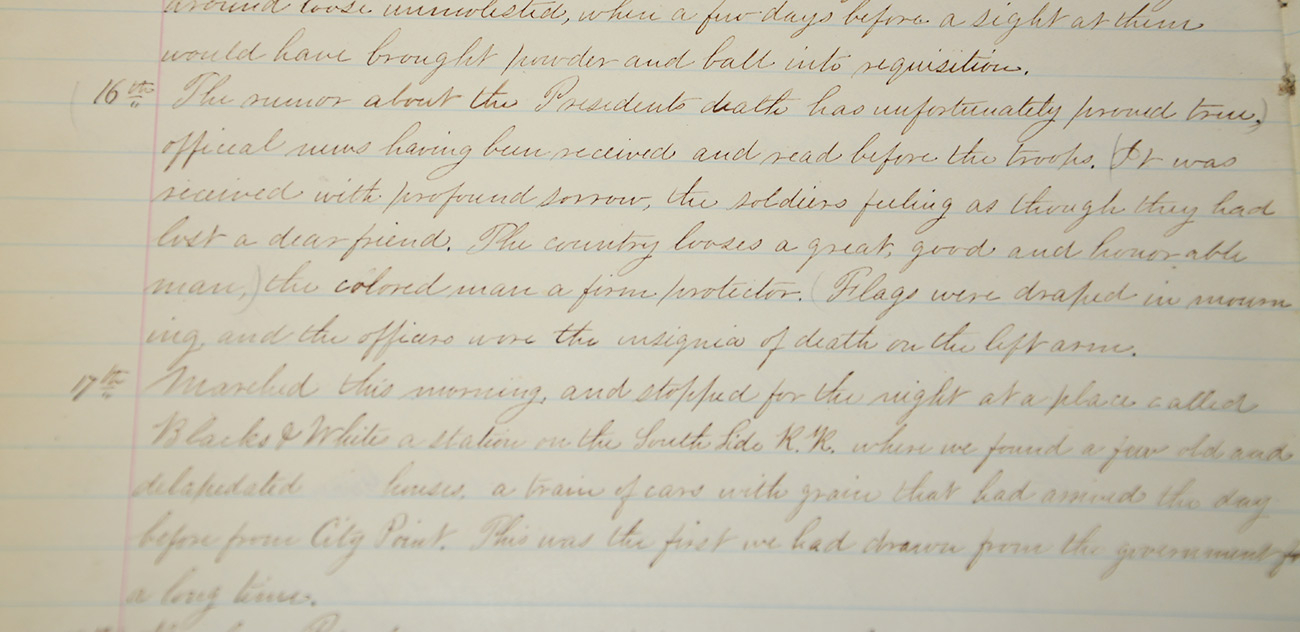 around loose unmolested, when a few days before a sight at them
would have brought powder and ball into requisition.
16th The rumor about the Presidents death has unfortunately proved true,)
official news having been received and read before the troops. (It was
received with profound sorrow, the soldiers feeling as though they had
lost a dear friend. The country looses a great, good and honorable
man,) the colored man a firm protector. (Flags were draped in mourn
ing, and the officers wore the insignia of death on the left arm.
17th Marched this morning, and stopped for the night at a place called
Blacks & White a station on the South Side R.R. where we found a few old and
delapedated houses, a train of cars with grain that had arrived the day
before from City Point. This was the first we had drawn from the government
a long time.